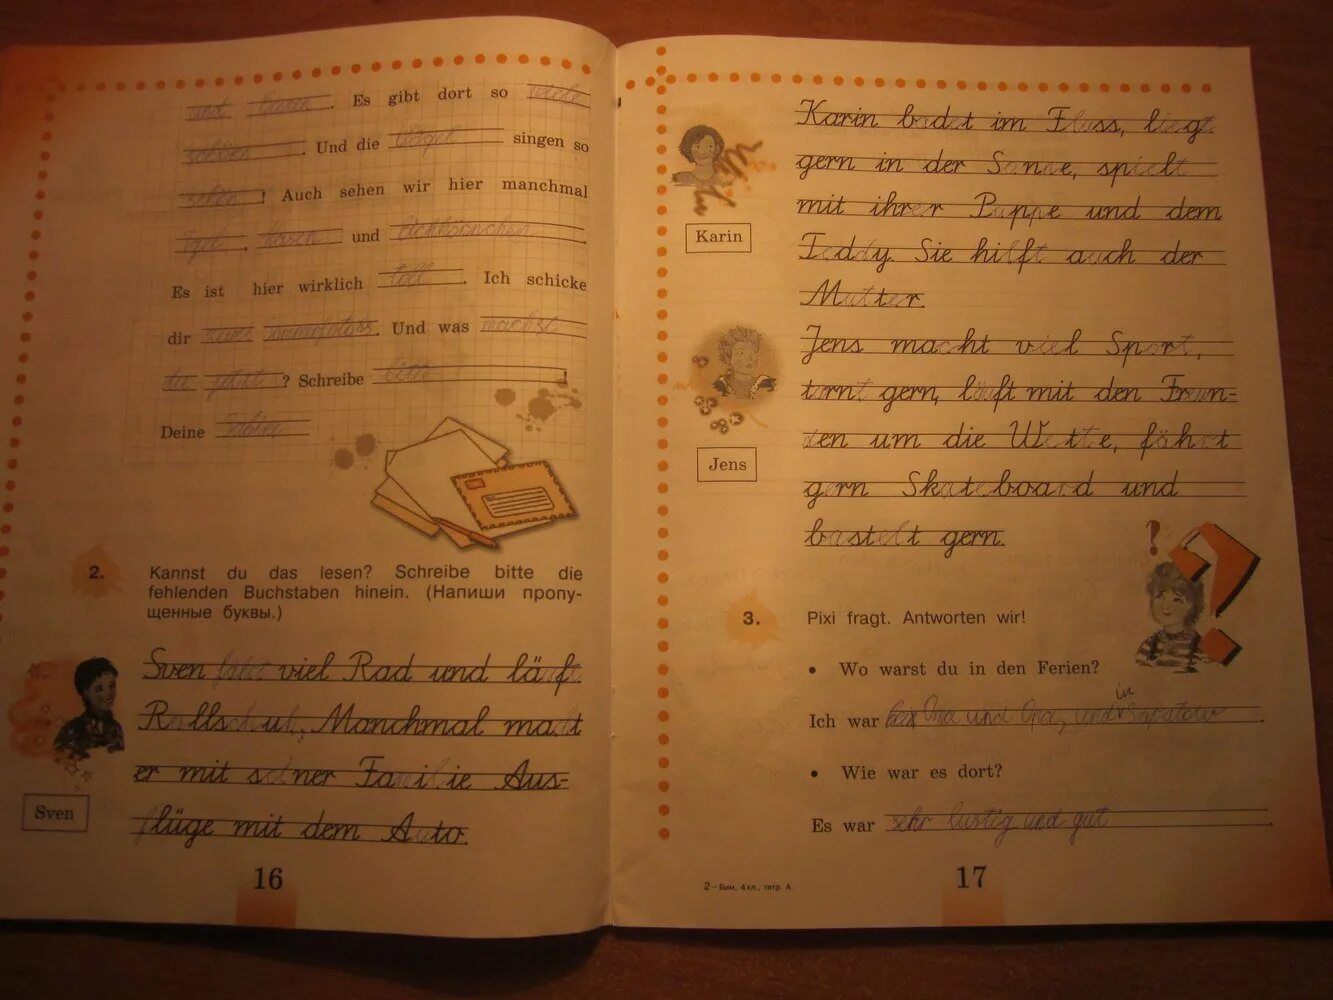 und lernen. Es gibt dort so viele
schöne . Und die Vögel singen so
schön! Auch sehen wir hier manchmal
Igel, Hasen und Eichhörnchen.
Es ist hier wirklich toll. Ich schicke
dir zwei Fotos. Und was machst
du jetzt? Schreibe bitte!
Deine Sabine
2. Kannst du das lesen? Schreibe bitte die
fehlenden Buchstaben hinein. (Напиши пропу-
щенные буквы.)
Sven fährt viel Rad und läuft
Rollschuh. Manchmal macht
er mit seiner Familie Aus-
flüge mit dem Auto.
Sven
16
Karin badet im Fluss, liegt
gern in der Sonne, spielt
mit ihrer Puppe und dem
Teddy. Sie hilft auch der
Mutter.
Karin
Jens macht viel Sport,
turnt gern, läuft mit den Freun-
den um die Wette, fährt
gern Skateboard und
bastelt gern.
Jens
3. Pixi fragt. Antworten wir!
• Wo warst du in den Ferien?
Ich war bei Oma und Opa, und in Saratow.
• Wie war es dort?
Es war sehr lustig und gut.
2–Бим, 4 кл., тетр. А.
17